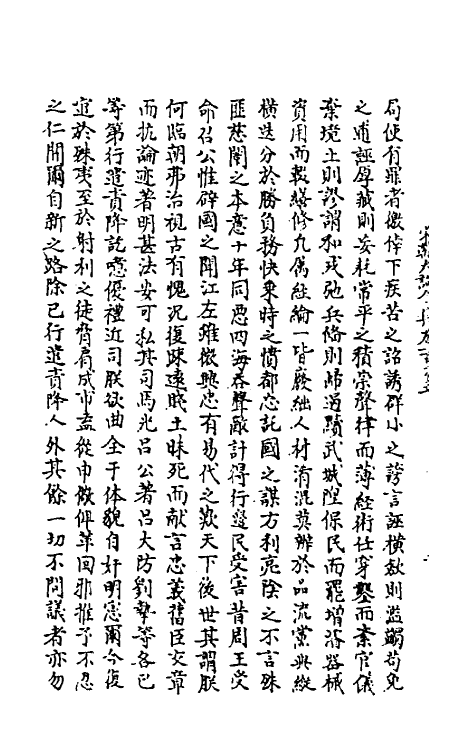 局使有罪者僥倖下疾苦之詔誘群小之謗言誣横斂則濫蠲苟免
之逋誣厚藏則妄耗常平之積崇聲律而薄經術任穿鑿而紊官儀
棄境土則謬謂和戎弛兵備則歸過黷武城隍保民而罷增浚器械
資用而輟繕修凡屬經綸一皆廢絀人材淆混莫辨於品流黨與縱
横迭分於勝負務快乘時之憤都忘託國之謀方利亮陰之不言殊
匪慈闈之本意十年同惡四海吞聲敵計得行邊民受害昔周王受
命召公惟辟國之聞江左雖微興悲有易代之歎天下後世其謂朕
何臨朝弗治視古有愧况復疎遠賤士昧死而献言忠義舊臣交章
而抗論迹著明甚法安可私其司馬光吕公著吕大防劉摯等各已
等第行遣責降訖噫優禮近司朕欲曲全于体貌自奸明憲爾今復
寘於殊裁至於射利之徒脅肩成市盍從申儆俾革回邪推予不忍
之仁開爾自新之路除已行遣責降人外其餘一切不問議者亦勿